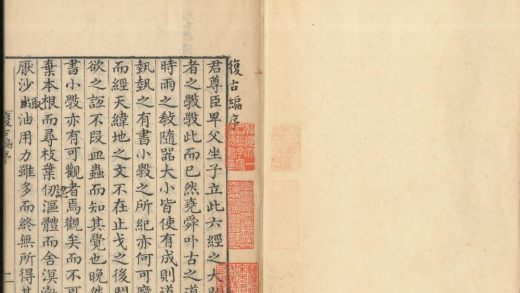 復古編序
君尊臣卑父坐子立此六經之大
者之斆斆此而已然堯舜卟古之道
時雨之教隨器大小皆使有成則道
埶埶之有書小斆之所紀亦何可
而經天緯地之文不在止戈之後
欲之誣不段血蟲而知其覺也晚然
書小斆亦有可觀者焉觀矣而不可
棄本根而尋枝葉仞漚體而舍溟
認
厭沙出油用力雖多而終無所得其
復古編序 一